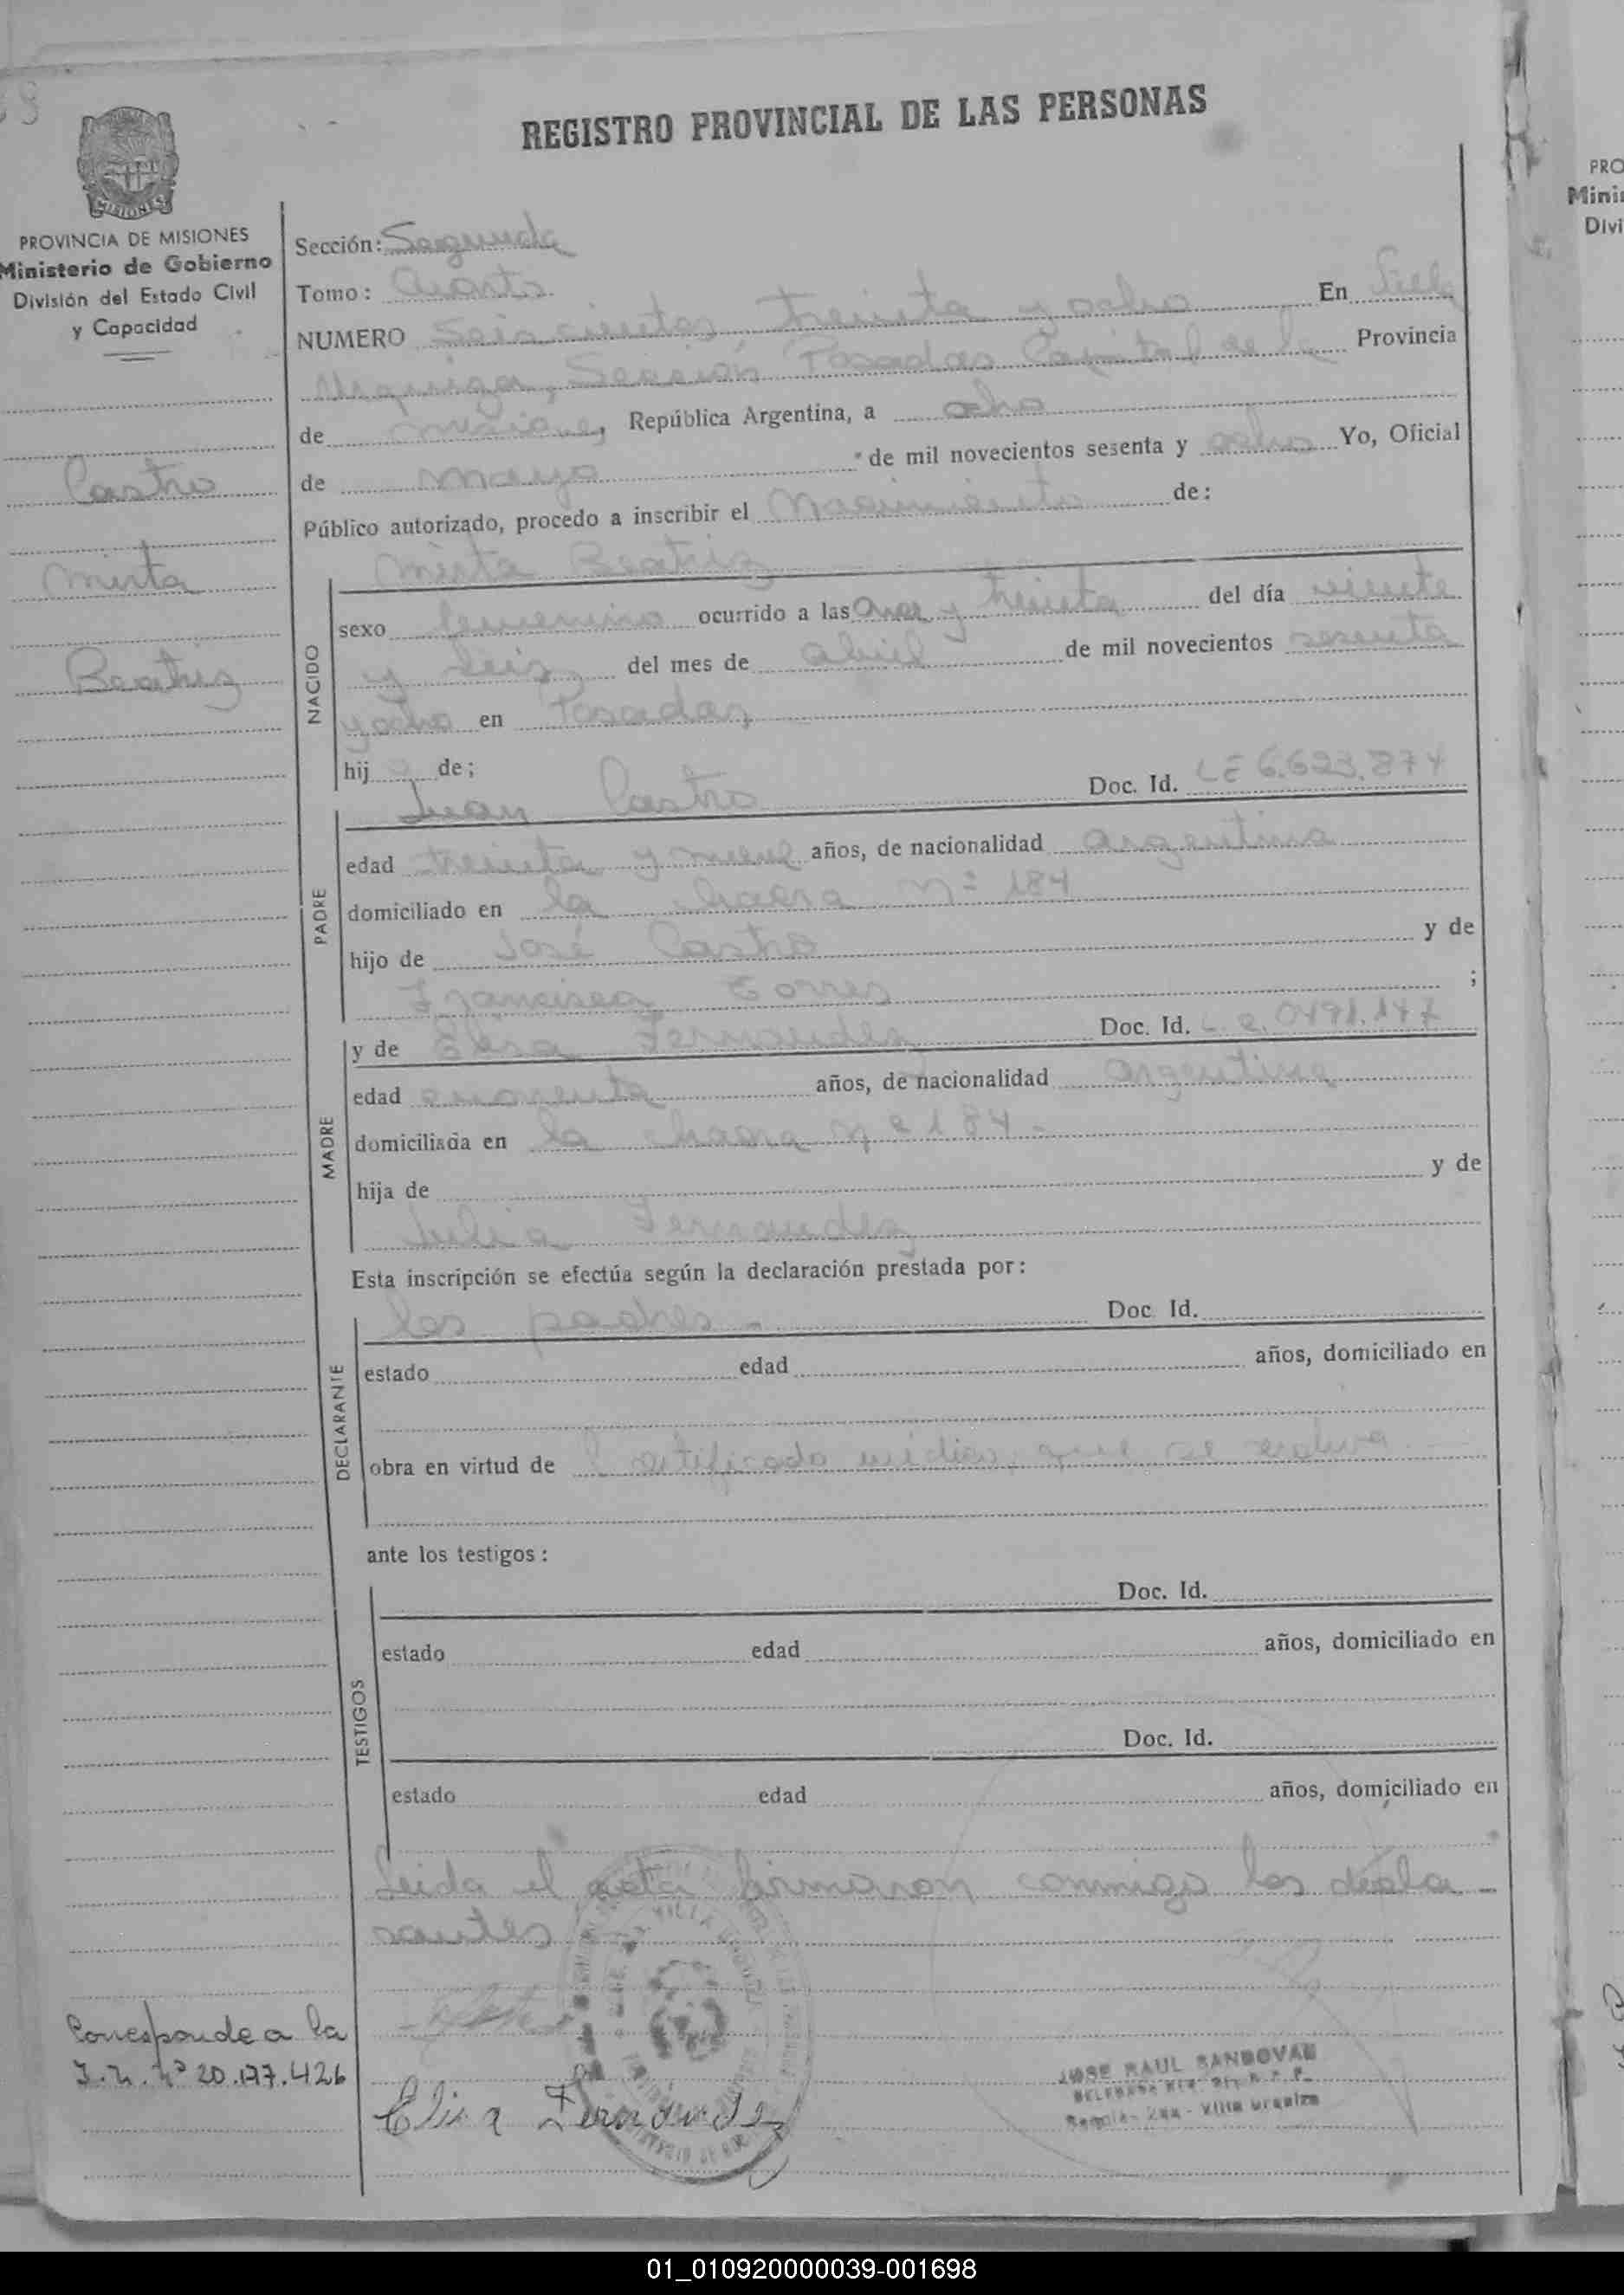 REGISTRO PROVINCIAL DE LAS PERSONAS
MISIONES
PROVINCIA DE MISIONES
Ministerio de Gobierno
División del Estado Civil
y Capacidad
Castro
Mirta
Beatriz
Corresponde a la
nº 20.177.426
Sección: Segunda
Tomo: Cuarto
NUMERO Seiscientos treinta y ocho En Villa
Urquiza, Sección Posadas Capital de la Provincia
de Misiones, República Argentina, a ocho
de Mayo de mil novecientos sesenta y ocho Yo, Oficial
Público autorizado, procedo a inscribir el Nacimiento de:
NACIDO
Mirta Beatriz
sexo femenino ocurrido a las once y treinta del día veinte
y seis del mes de abril de mil novecientos sesenta
y ocho en Posadas
hija de;
PADRE
Juan Castro Doc. Id. LE 6.623.874
edad treinta y nueve años, de nacionalidad argentina
domiciliado en la chacra Nº 184
hijo de José Castro y de
Francisca Torres ;
MADRE
y de Elisa Fernandez Doc. Id. L.C. 0491.147
edad cuarenta años, de nacionalidad argentina
domiciliada en la chacra Nº 184.-
hija de y de
Julia Fernandez
Esta inscripción se efectúa según la declaración prestada por:
DECLARANTE
los padres.- Doc. Id.
estado edad años, domiciliado en
obra en virtud de Certificado médico, que se archiva
ante los testigos:
TESTIGOS
Doc. Id.
estado edad años, domiciliado en
Doc. Id.
estado edad años, domiciliado en
Leida el acta firmaron conmigo los decla-
rantes
Elisa Fernandez
JOSE RAUL SANDOVAL
Villa Urquiza
PRO
Minis
Divi
01_010920000039-001698